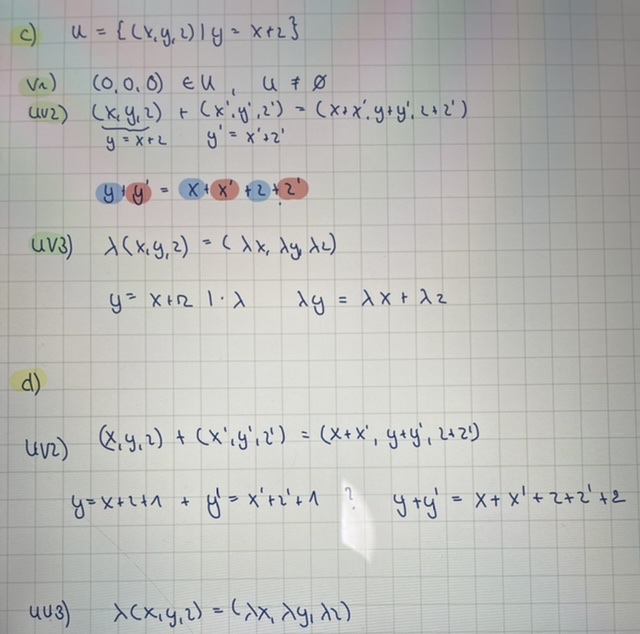 c) U = {(x,y,z) | y = x+z}
UV1) (0,0,0) ∈ U, U ≠ ∅
UV2) (x,y,z) + (x',y',z') = (x+x', y+y', z+z')
y = x+z y' = x'+z'
y+y' = x+x'+z+z'
UV3) λ(x,y,z) = (λx, λy, λz)
y = x+z | · λ λy = λx + λz
d)
UV2) (x,y,z) + (x',y',z') = (x+x', y+y', z+z')
y=x+z+1 + y' = x'+z'+1 ? y+y' = x+x'+z+z'+2
UV3) λ(x,y,z) = (λx, λy, λz)